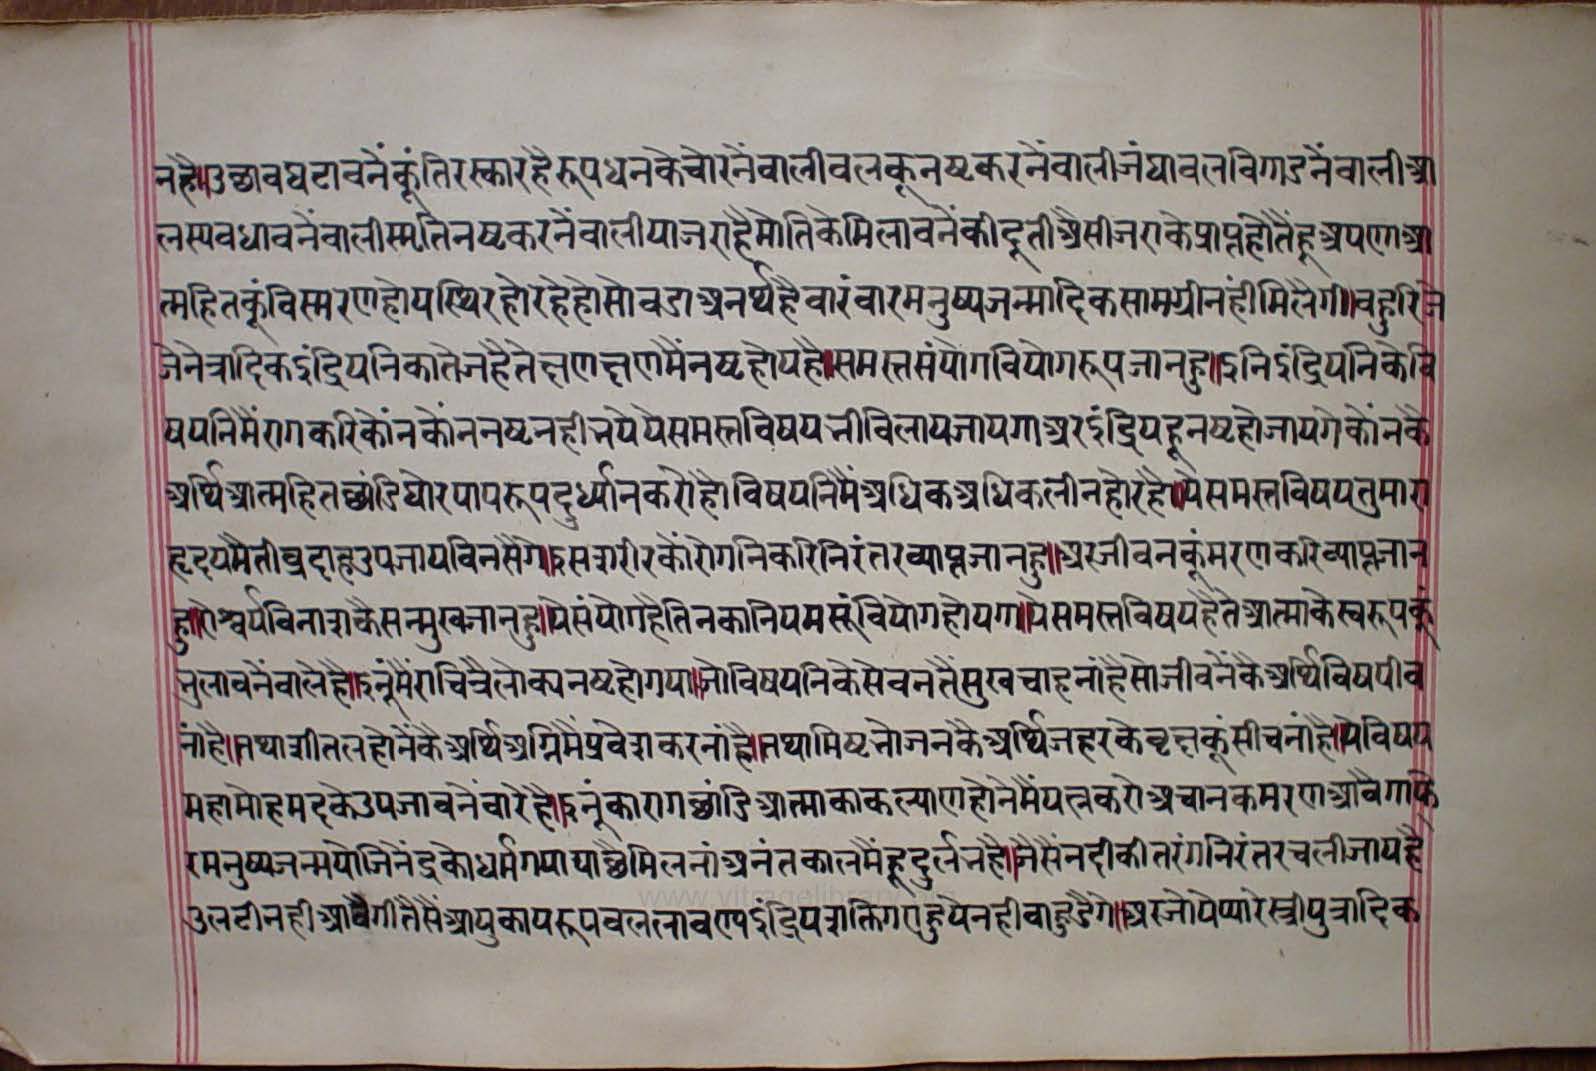 न है॥उछाव घटावनेंकूं तिरस्कार है रूपधनके चोरनेंवाली वलकू नष्ट करनेंवाली जंघावल विगाडनेंवाली आ
लस्य वधावनेंवाली स्मृति नष्ट करनेंवाली या जरा है मोतिके मिलावनेंकी दूती अैसी जराके प्राप्त होतैंहू अपणा आ
त्महितकूं विस्मरण होय स्थिर हो रहे हो सो वडा अनर्थ है वारंवार मनुष्य जन्मादिक सामग्री नंही मिलैगी॥वहुरि जे
जे नेत्रादिक इंद्रियनिका तेज है ते क्षण क्षणमैं नष्ट होय है॥समस्त संयोग वियोगरूप जानहु॥इनि इंद्रियनिके वि
षयनिमैं राग करिकें कोंन कोंन नष्ट नही भये ये समस्त विषय भी विलाय जायगा अर इंद्रिय हू नष्ट हो जायगे कोंनकै
अर्थि आत्महित छांडि घोर पापरूप दुर्ध्यान करो हो विषयनिमैं अधिक अधिक लीन हो रहे॥ये समस्त विषय तुमारा
हृदयमै तीव्र दाह उपजाय विनसैंगे॥इस शरीरकों रोगनिकरि निरंतर व्याप्त जानहु॥अर जीवनकूं मरणकरि व्याप्त जान
हु॥ऐश्वर्य विनाशकै सन्मुख जानहु॥ये संयोग है तिनका नियमसूं वियोग होयगा॥ये समस्त विषय है ते आत्माके स्वरूपकूं
भुलावनेंवाले है॥इनूंमैं राचि त्रैलोक्य नष्ट हो गया॥जो विषयनिके सेवनतैं सुख चाहनां है सो जीवनेंकै अर्थि विष पीव
नां है॥तथा शीतल होनेंकै अर्थि अग्निमैं प्रवेश करनां है॥तथा मिष्ट भोजनकै अर्थि जहरके वृक्षकूं सीचनां है॥ये विषय
महामोह मदके उपजावनेंवारे है॥इनूंका राग छांडि आत्माका कल्याण होनेमैं यत्न करो अचानक मरण आवैगा फे
र मनुष्य जन्म यो जिनेंद्रको धर्म गया पाछै मिलनां अनंत कालमैं हू दुर्लभ है॥जैसैं नदीकी तरंग निरंतर चली जाय है
उलटी नही आवैगी तैसैं आयु काय रूप वल लावण्य इंद्रिय शक्ति गए हुये नही वाहुडैंगे॥अर जो ये प्यारे स्त्री पुत्रादिक
www.vitragelibrary.org